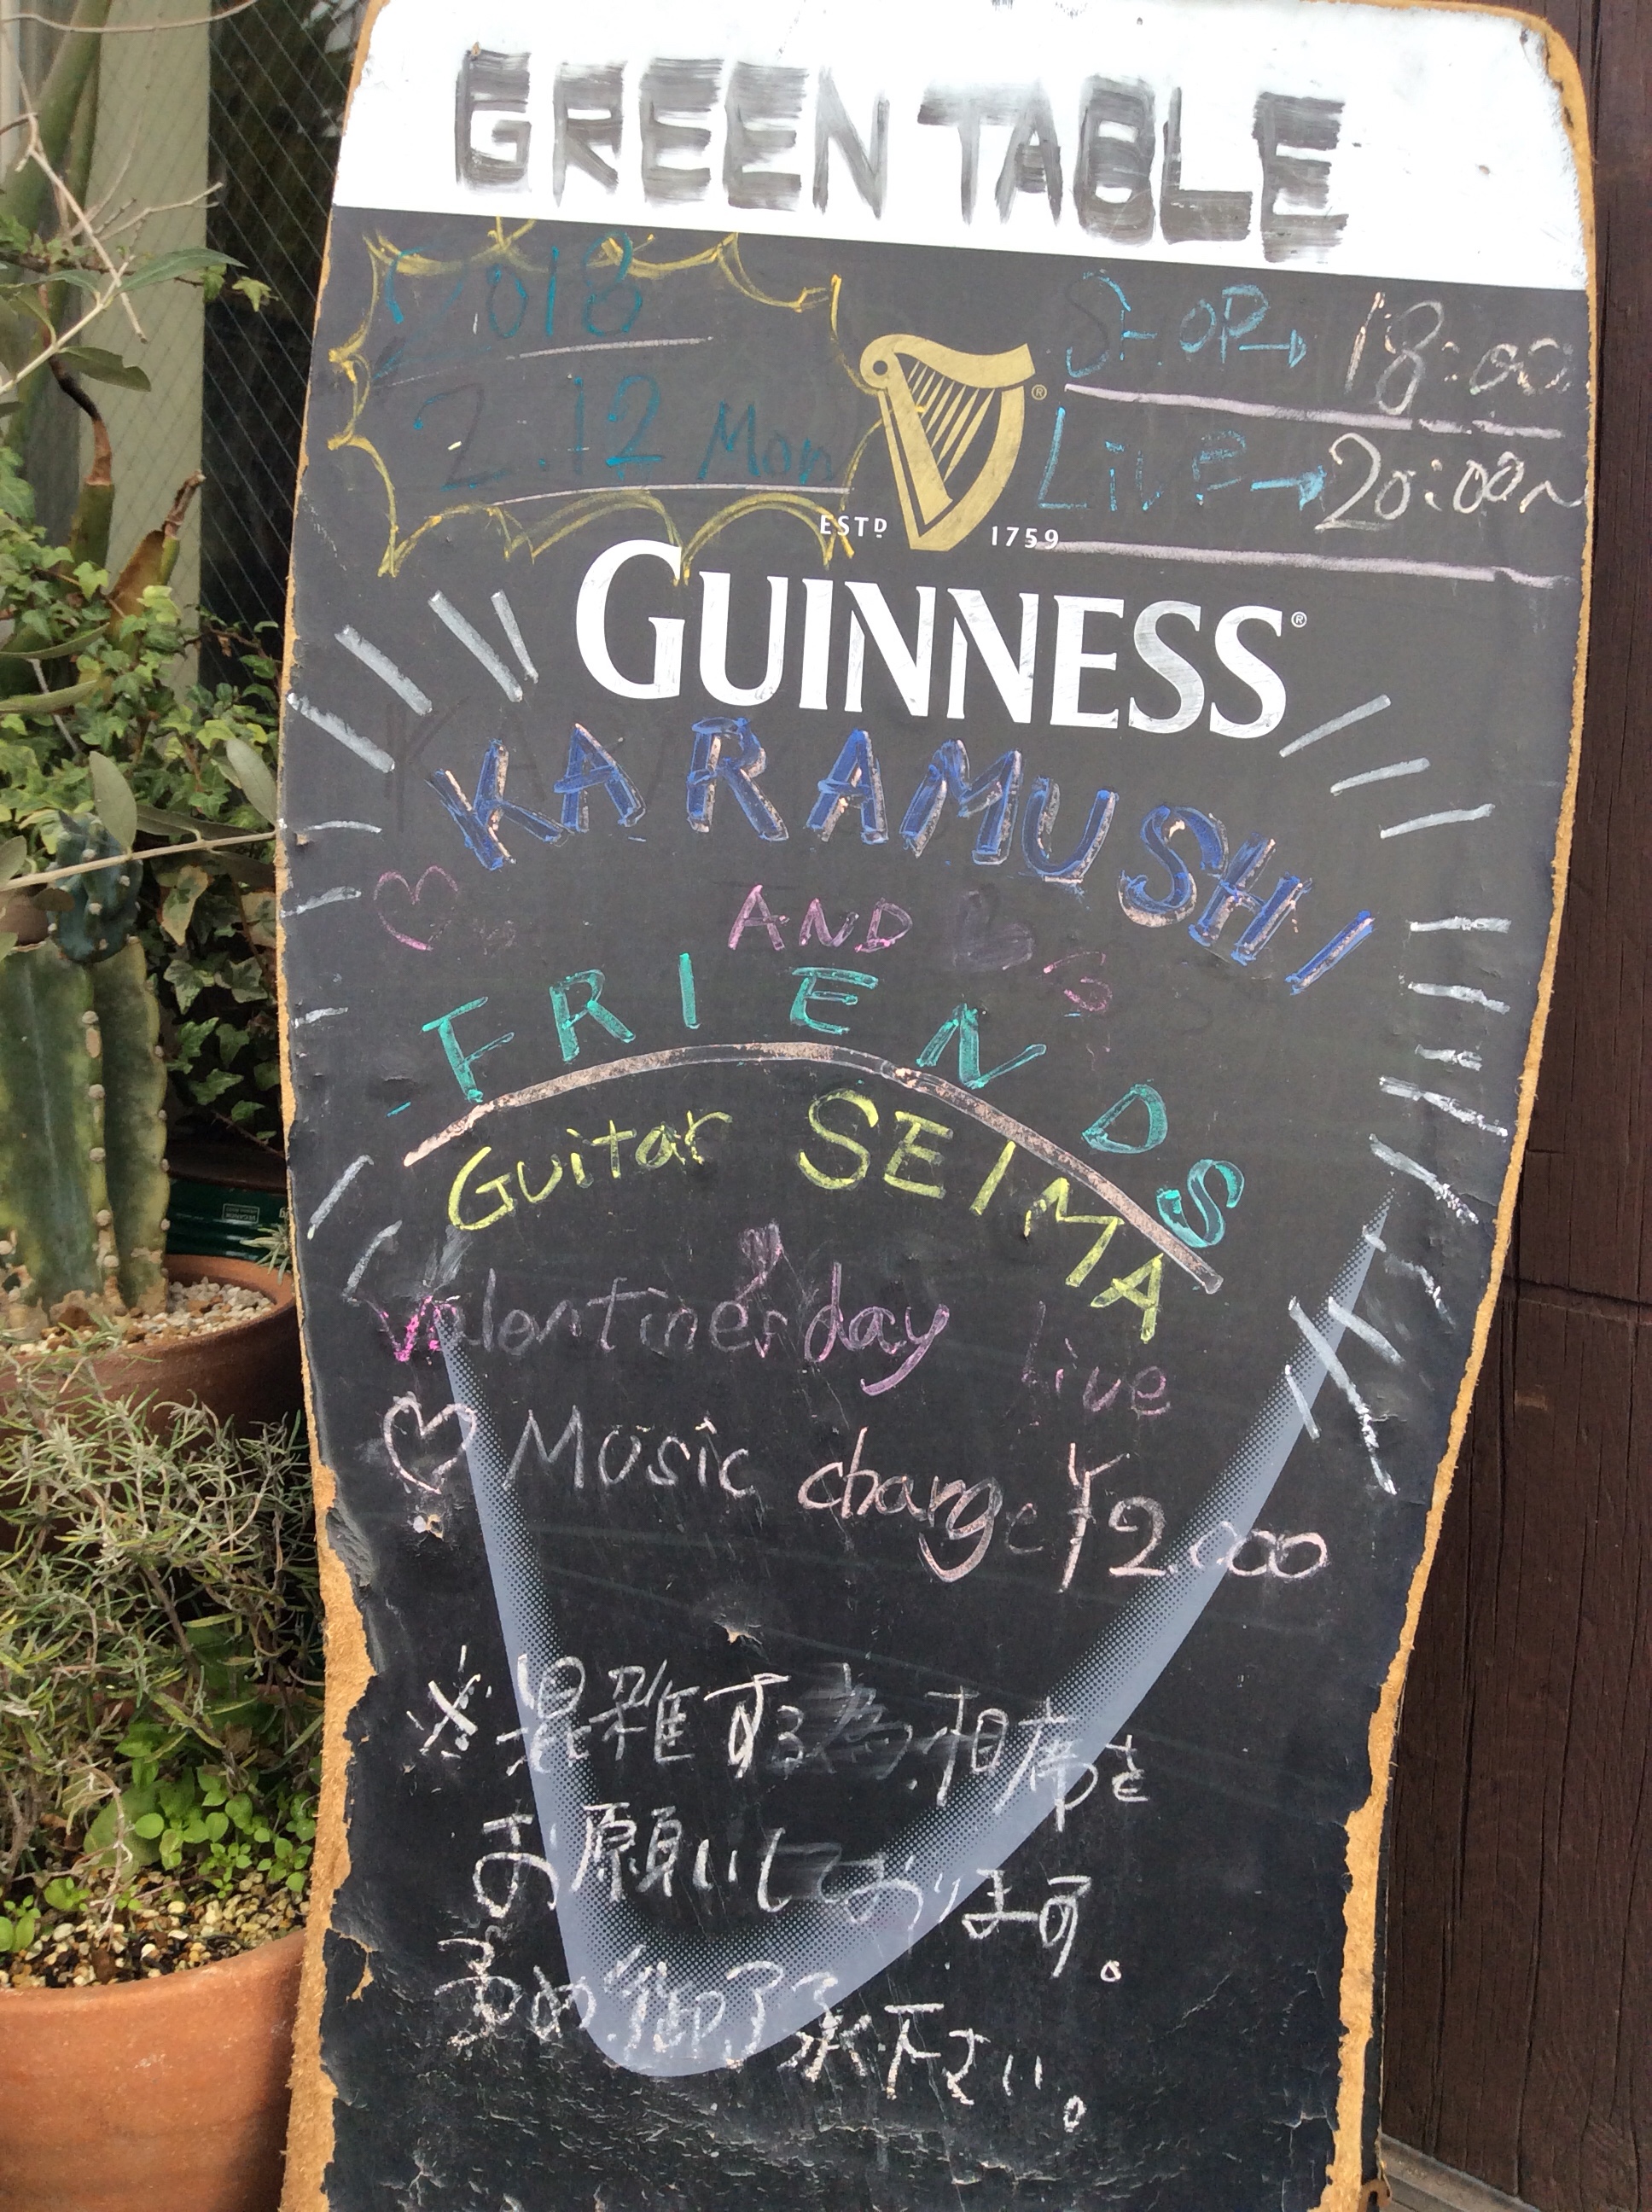 GREEN TABLE
2018
2.12 Mon
SHOP→ 18:00
Live→20:00~
ESTD 1759
GUINNESS®
KARAMUSHI
AND
FRIENDS
Guitar SEIMA
Valentine's day live
Music charge ¥2.000
※混雑する為.相席を
お願いしております。
予め御了承下さい。